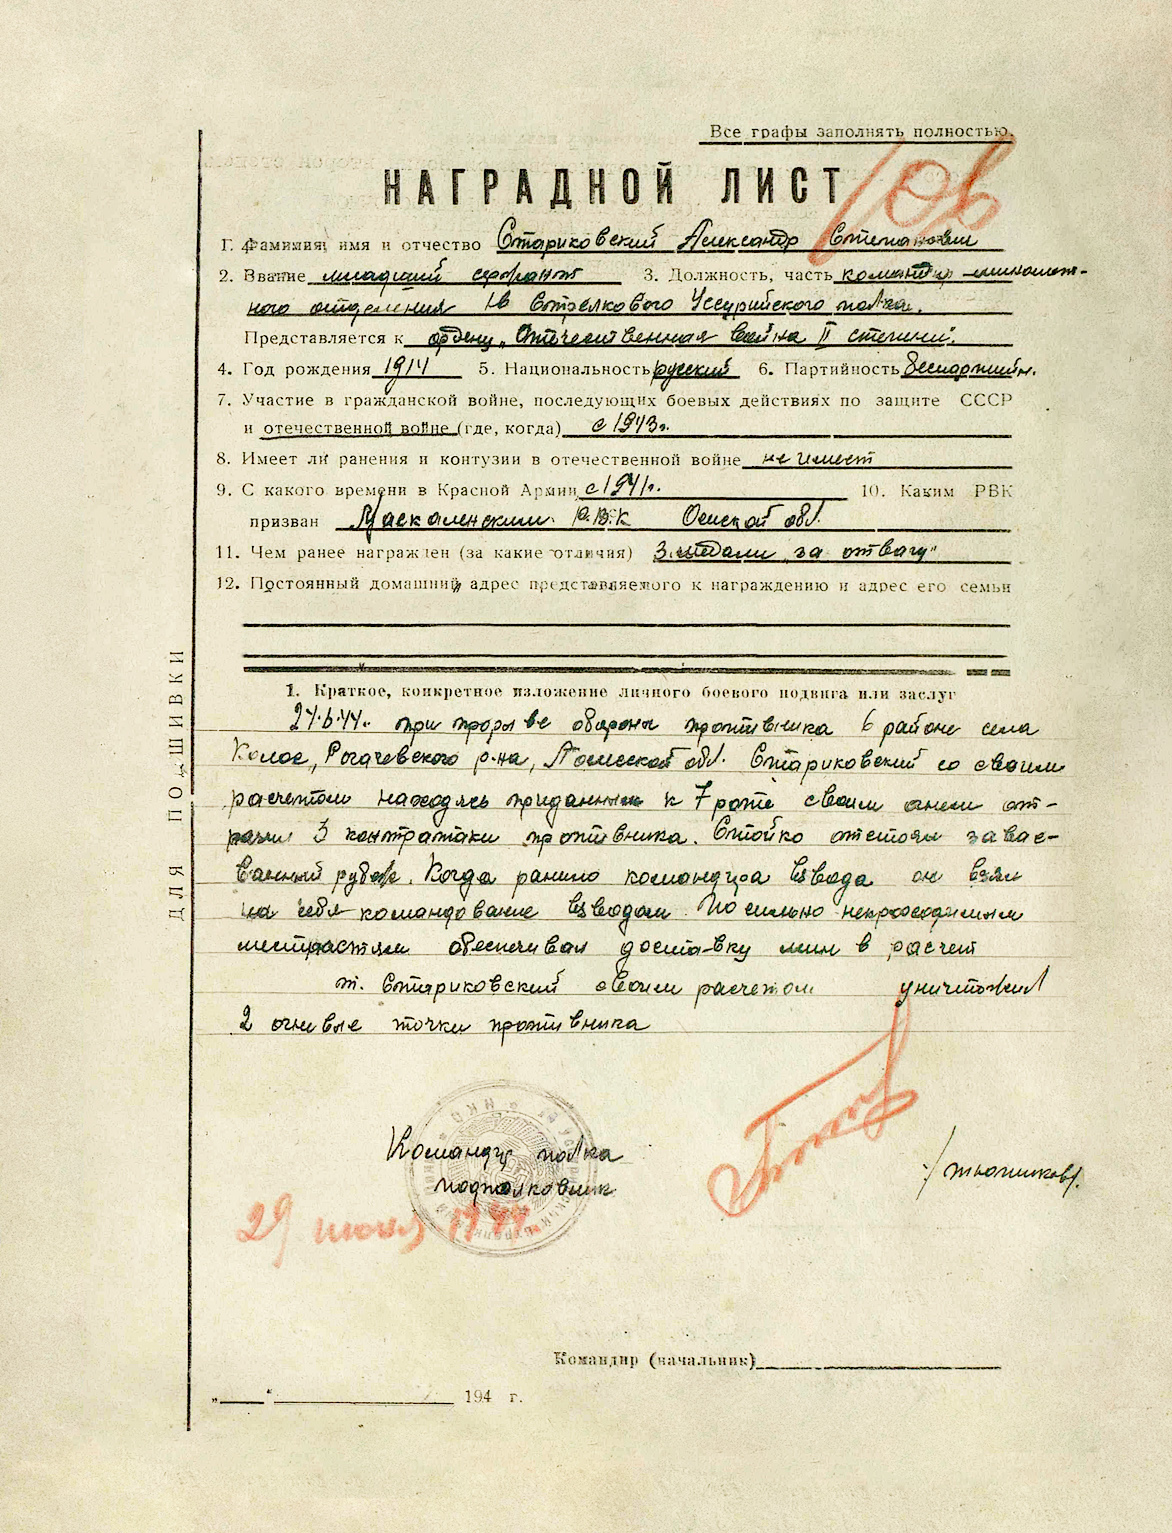 Все графы заполнять полностью.
НАГРАДНОЙ ЛИСТ
1. Фамилия, имя и отчество Стариковский Александр Степанович
2. Звание младший сержант 3. Должность, часть командир миномет-
ного отделения 1в Стрелкового Уссурийского полка.
Представляется к ордену „Отечественная война II степени".
4. Год рождения 1914 5. Национальность русский 6. Партийность беспартийн.
7. Участие в гражданской войне, последующих боевых действиях по защите СССР
и отечественной войне (где, когда) с 1943г.
8. Имеет ли ранения и контузии в отечественной войне не имеет
9. С какого времени в Красной Армии с 1941г. 10. Каким РВК
призван Р.В.К Омской обл.
11. Чем ранее награжден (за какие отличия) 3 медали „за отвагу"
12. Постоянный домашний адрес представляемого к награждению и адрес его семьи
1. Краткое, конкретное изложение личного боевого подвига или заслуг
24.6.44г. при прорыве обороны противника в районе села
Колос, Рогачевского р-на, Гомельской обл. Стариковский со своим
расчетом находясь приданным к 7 роте своим огнем от-
разил 3 контратаки противника. Стойко отстоял завое-
ванный рубеж. Когда ранило командира взвода он взял
на себя командование взводом. По сильно непроходимым
местностям обеспечивал доставку мин в расчет
т. Стариковский своим расчетом уничтожил
2 огневые точки противника
Командир полка
подполковник
/Тюпиков/.
29 июня 1944г.
Командир (начальник)
„ “ 194 г.
ДЛЯ ПОДШИВКИ